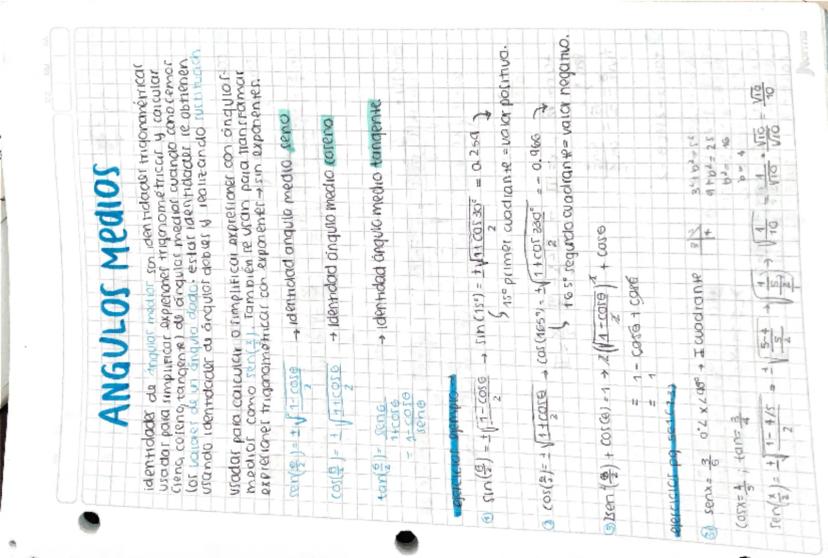 ANGULOS MEDIOS
identidades de ángulos medios son identidades trigonométricas
usadas para simplificar expresiones trigonométricas y calcular
(seno, coseno, tangente) de ángulos medios cuando conocemos
los valores de un ángulo dado. estas identidades se obtienen
usando identidades de ángulos dobles y realizando sustitución
usadas para calcular o simplificar expresiones con ángulos
medios como sen(x/2). También se usan para transformar
expresiones trigonométricas con exponentes → sin exponentes.
sen(θ/2) = ±√((1-cosθ)/2) → identidad angulo medio seno
cos(θ/2) = ±√((1+cosθ)/2) → identidad ángulo medio coseno
tan(θ/2) = senθ/(1+cosθ) → identidad ángulo medio tangente
= (1-cosθ)/senθ
ejercicios ejemplo
① sin(θ/2) = ±√((1-cosθ)/2) → sin(15°) = ±√((1+cos30°)/2) = 0.259
15° primer cuadrante = valor positivo.
② cos(θ/2) = ±√((1+cosθ)/2) → cos(165°) = ±√((1+cos330°)/2) = -0.966
165° segundo cuadrante = valor negativo.
③ 2sen²(θ/2) + cos(θ) = 1 → 2(√((1-cosθ)/2))² + cosθ
= 1 - cosθ + cosθ
= 1
ejercicios pg
senx = 3/5 0°<x<90° → I cuadrante
3²+b²=5²
9+b²=25
b²=16
b=4
cosx = 4/5; tan = 3/4
sen(x/2) = ±√((1-4/5)/2) = ±√(((5-4)/5)/2) → √((1/5)/2) → √(1/10) = 1/√10 · √10/√10 = √10/10
Norma